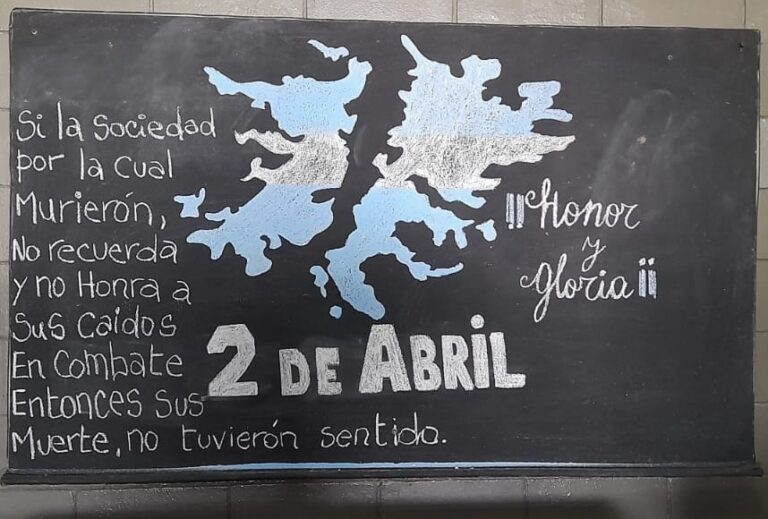 Si la sociedad
por la cual
Murierón,
No recuerda
y no Honra a
Sus Caidos
En Combate
Entonces Sus
Muerte, no tuvierón sentido.
¡¡Honor
y
Gloria!!
2 DE ABRIL